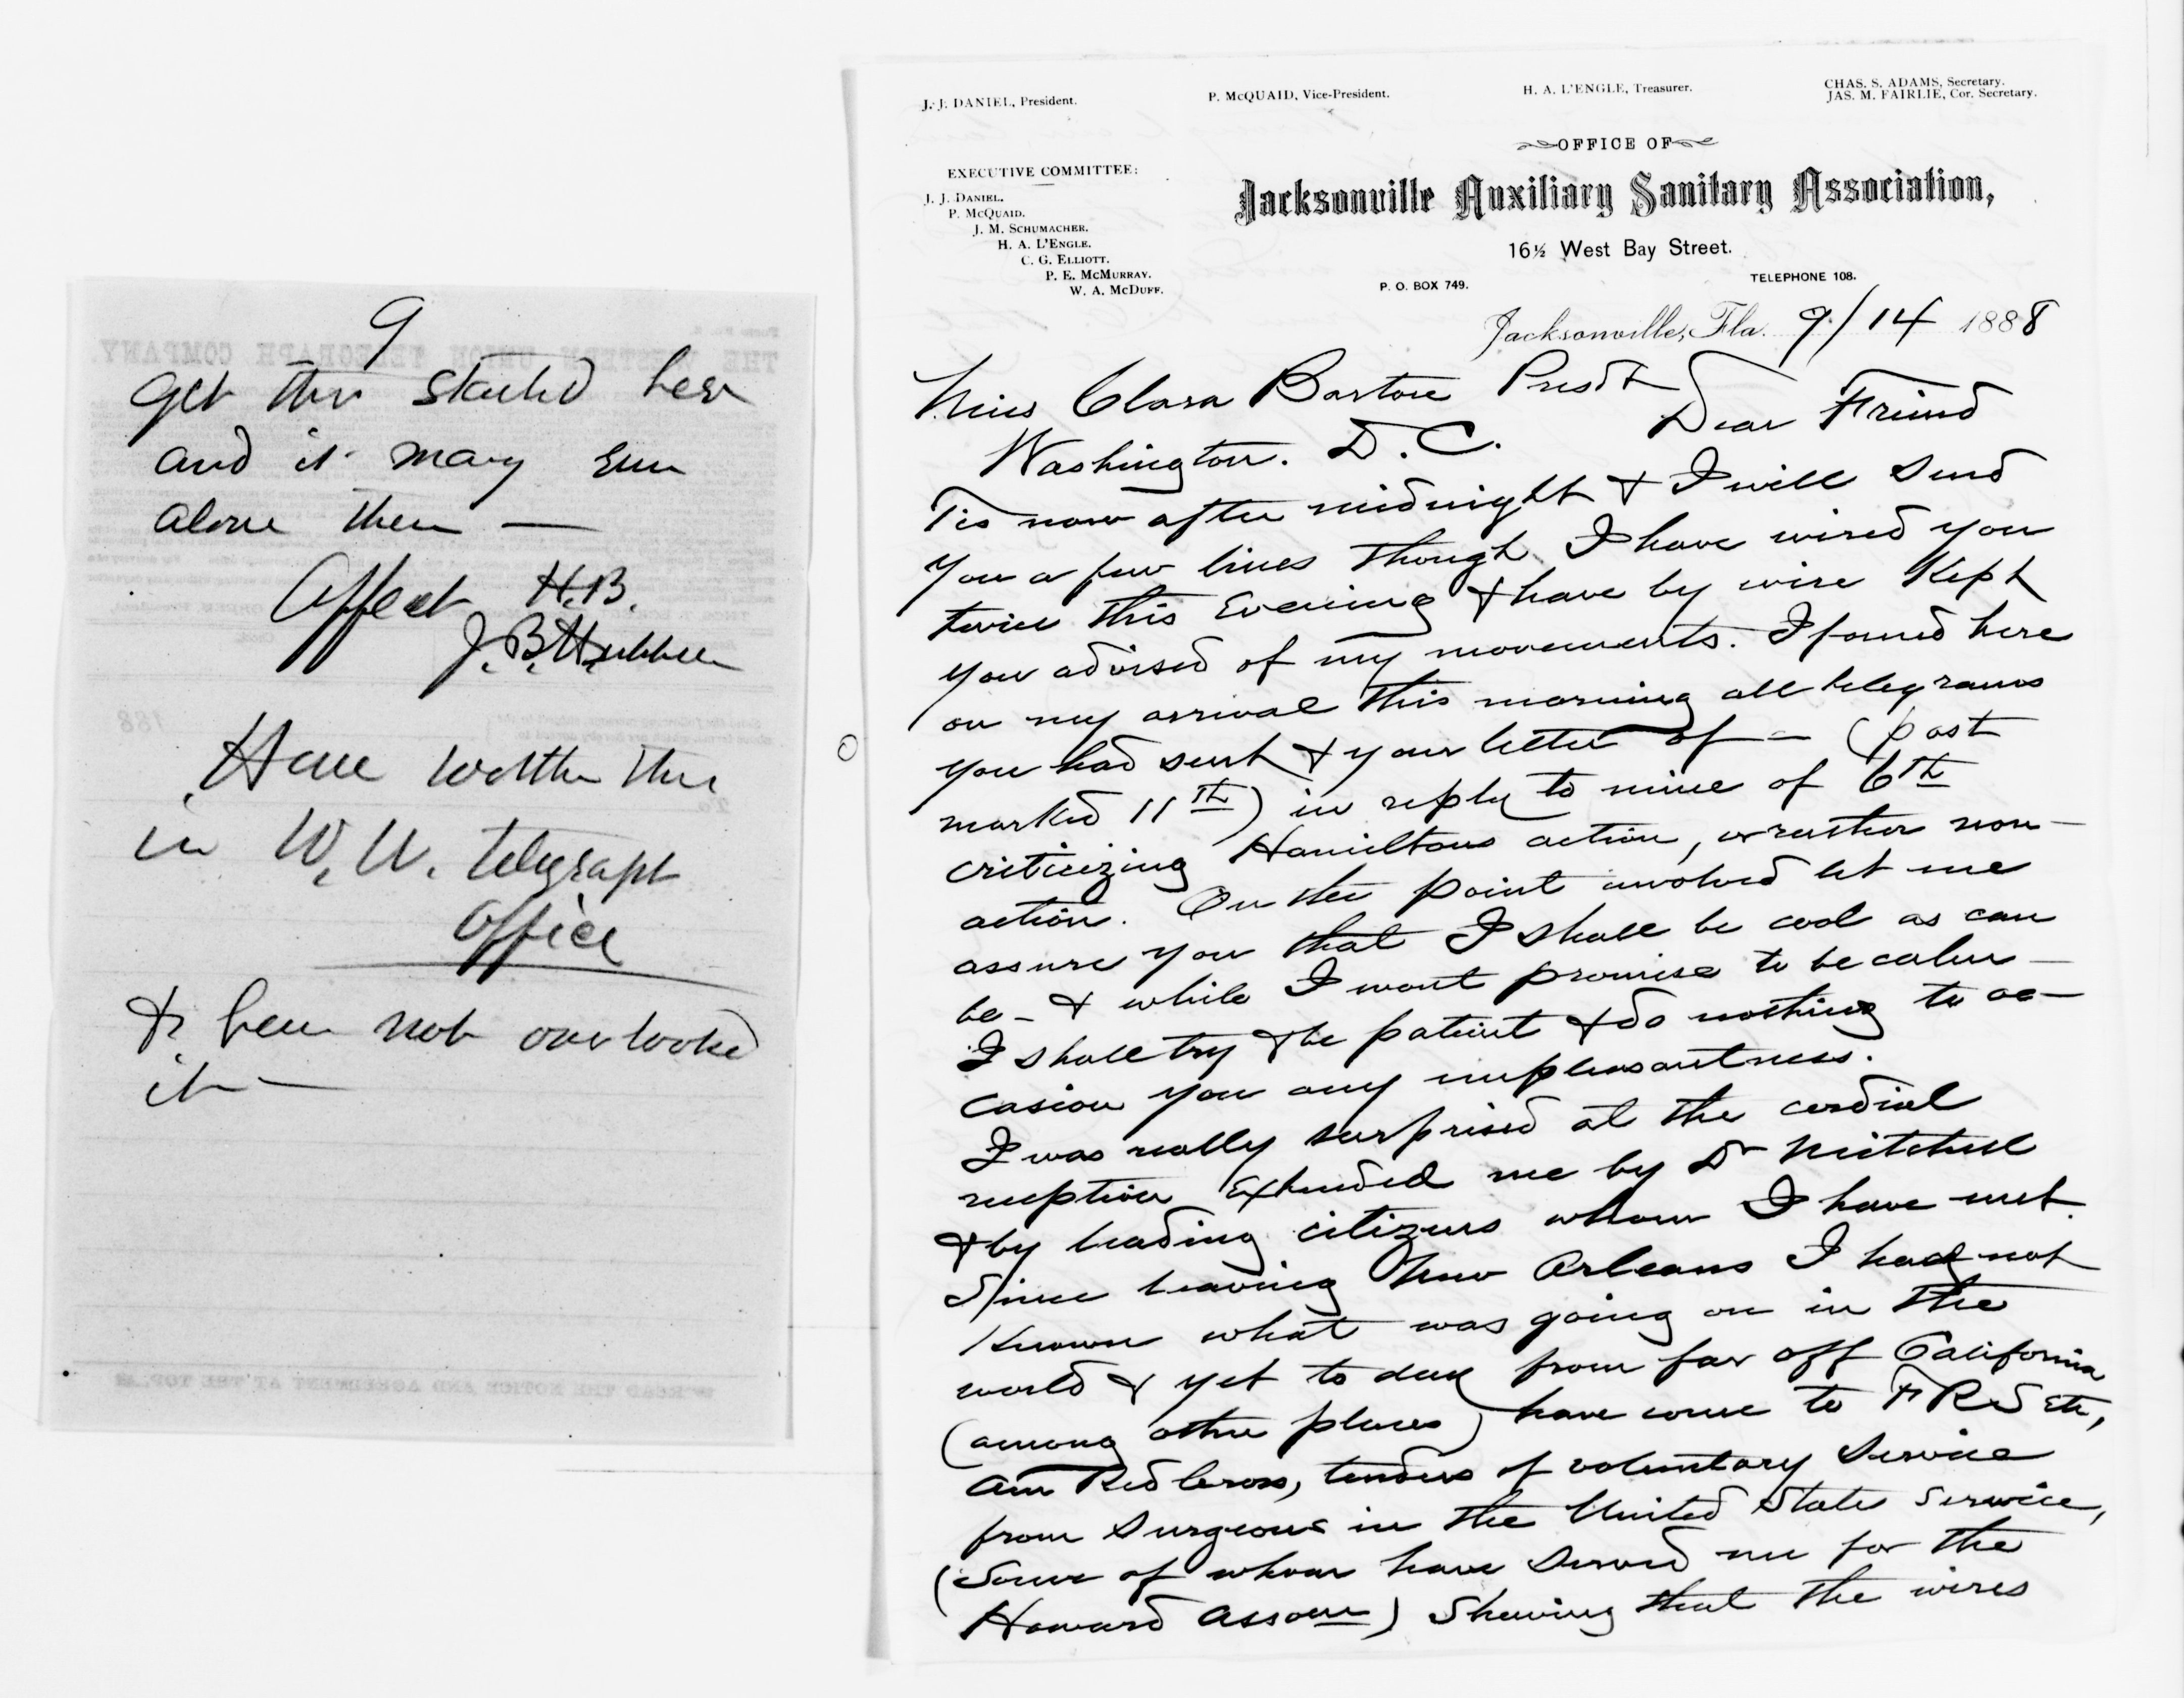 9
get this started here
and it may run
alone then —
Affect H.B.
J. B. Hubbell
Have written this
in W. U. telegraph
Office
& have not overlooked
it —
J. J. DANIEL, President.
P. McQUAID, Vice-President.
H. A. L'ENGLE, Treasurer.
CHAS. S. ADAMS, Secretary.
JAS. M. FAIRLIE, Cor. Secretary.
OFFICE OF
Jacksonville Auxiliary Sanitary Association,
16½ West Bay Street.
P. O. BOX 749.
TELEPHONE 108.
EXECUTIVE COMMITTEE:
J. J. DANIEL.
P. McQUAID.
J. M. SCHUMACHER.
H. A. L'ENGLE.
C. G. ELLIOTT.
P. E. McMURRAY.
W. A. McDUFF.
Jacksonville, Fla. 9/14 1888
Miss Clara Barton Presdt
Washington. D. C.
Dear Friend
Tis now after midnight & I will send
you a few lines though I have wired you
twice this Evening & have by wire Kept
you advised of my movements. I found here
on my arrival this morning all telegrams
you had sent & your letter of — (post
marked 11th) in reply to mine of 6th
criticizing Hamiltons action, or rather non-
action. On the point involved let me
assure you that I shall be cool as can
be — & while I wont promise to be calm —
I shall try & be patient & do nothing to oc-
casion you any unpleasantness.
I was really surprised at the cordial
reception Extended me by Dr Mitchell
& by leading citizens whom I have met.
Since leaving New Orleans I had not
Known what was going on in the
world & yet to day from far off California
(among other places) have come to F R S etc,
Am Red Cross, tenders of voluntary Service
from Surgeons in the United State Service,
(Some of whom have Served me for the
Howard Assocn) Shewing that the wires